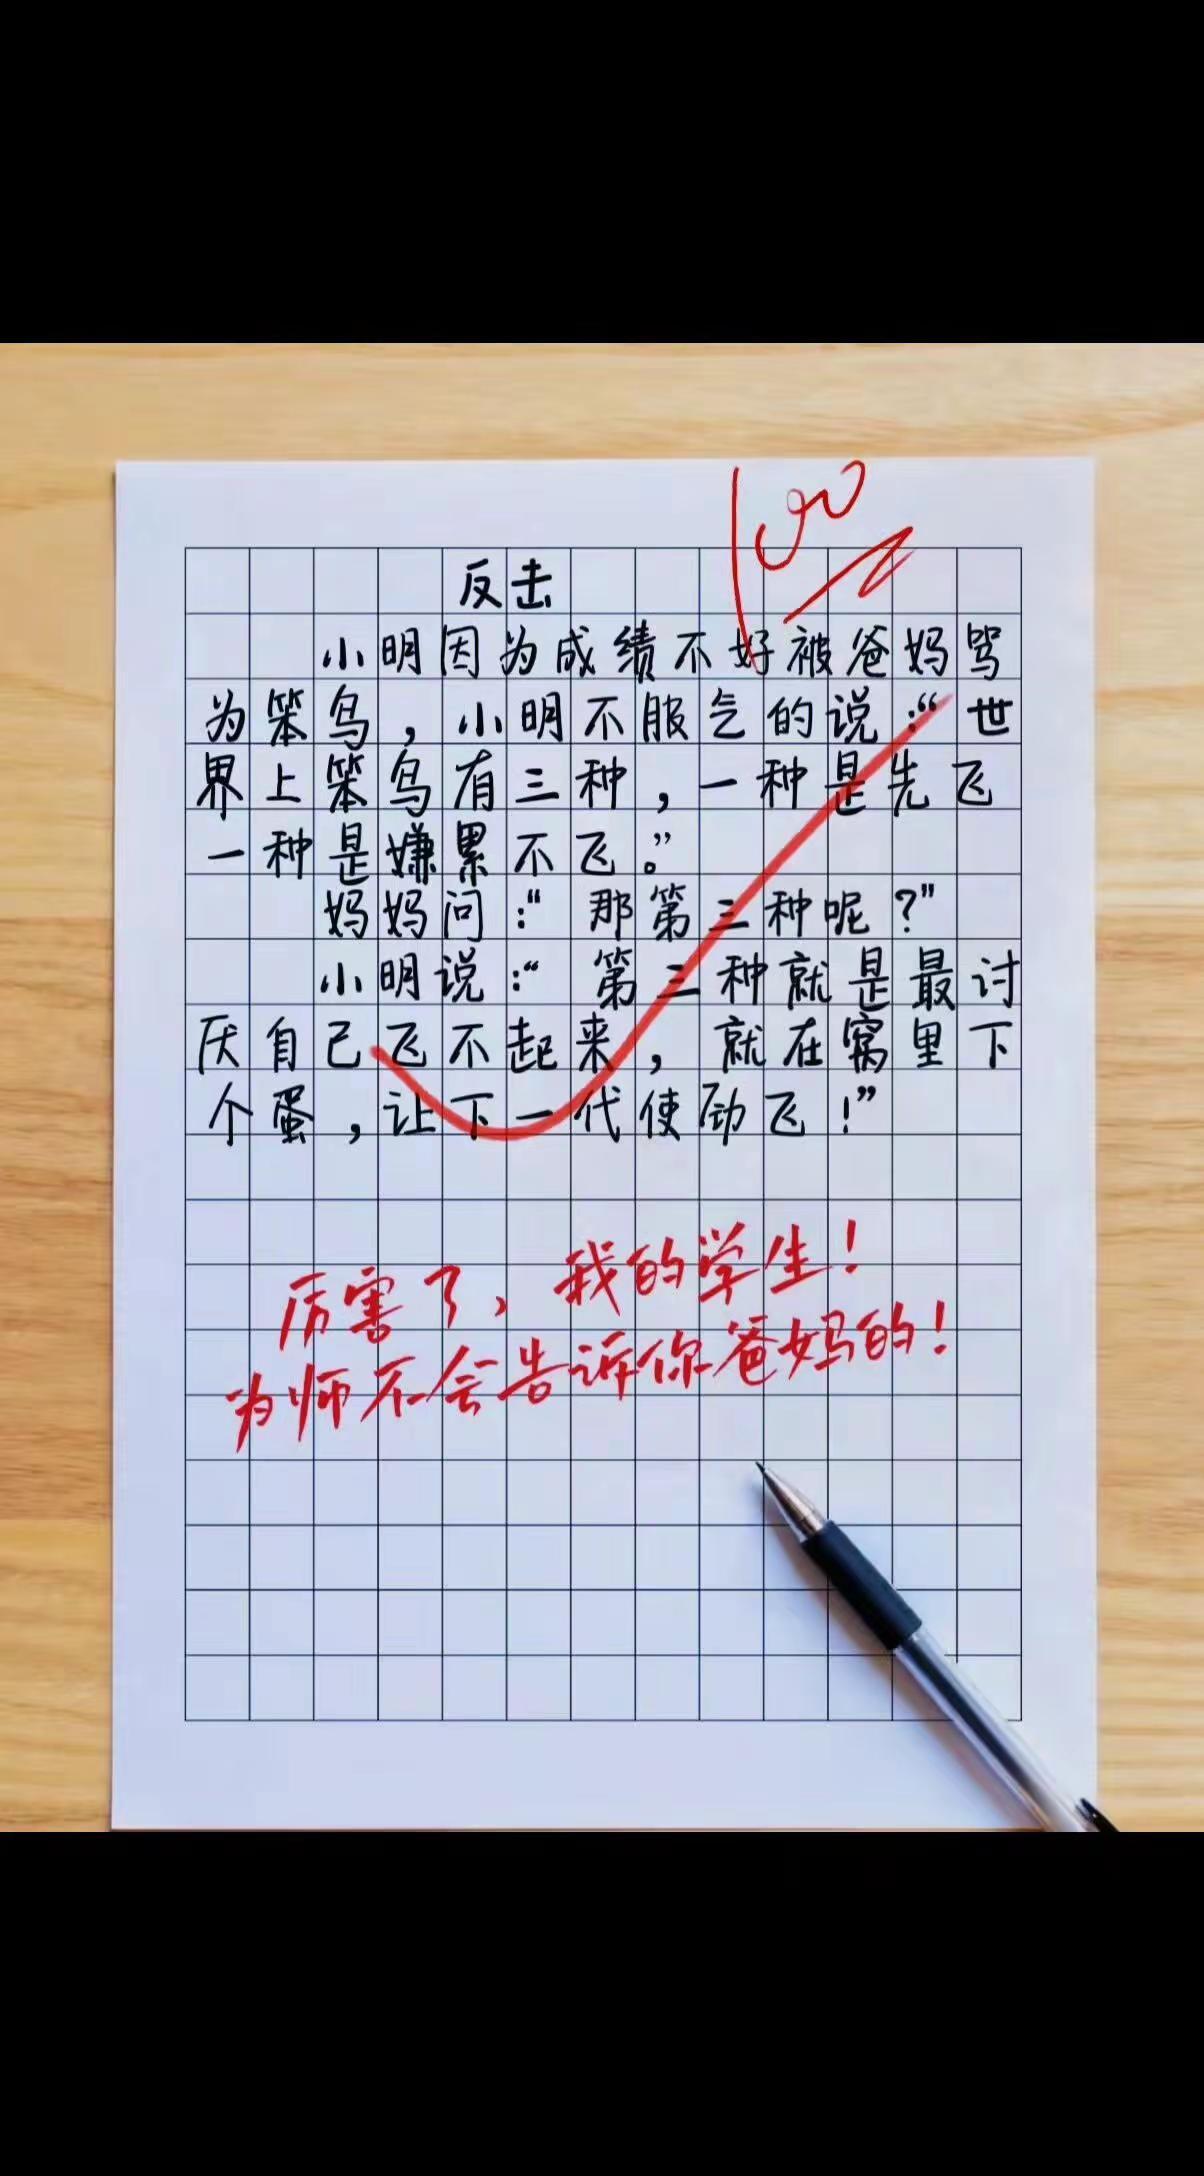 100
反击
小明因为成绩不好被爸妈骂
为笨鸟，小明不服气的说：“世
界上笨鸟有三种，一种是先飞
一种是嫌累不飞。”
妈妈问：“那第三种呢？”
小明说：“第三种就是最讨
厌自己飞不起来，就在窝里下
个蛋，让下一代使劲飞！”
厉害了，我的学生！
为师不会告诉你爸妈的！